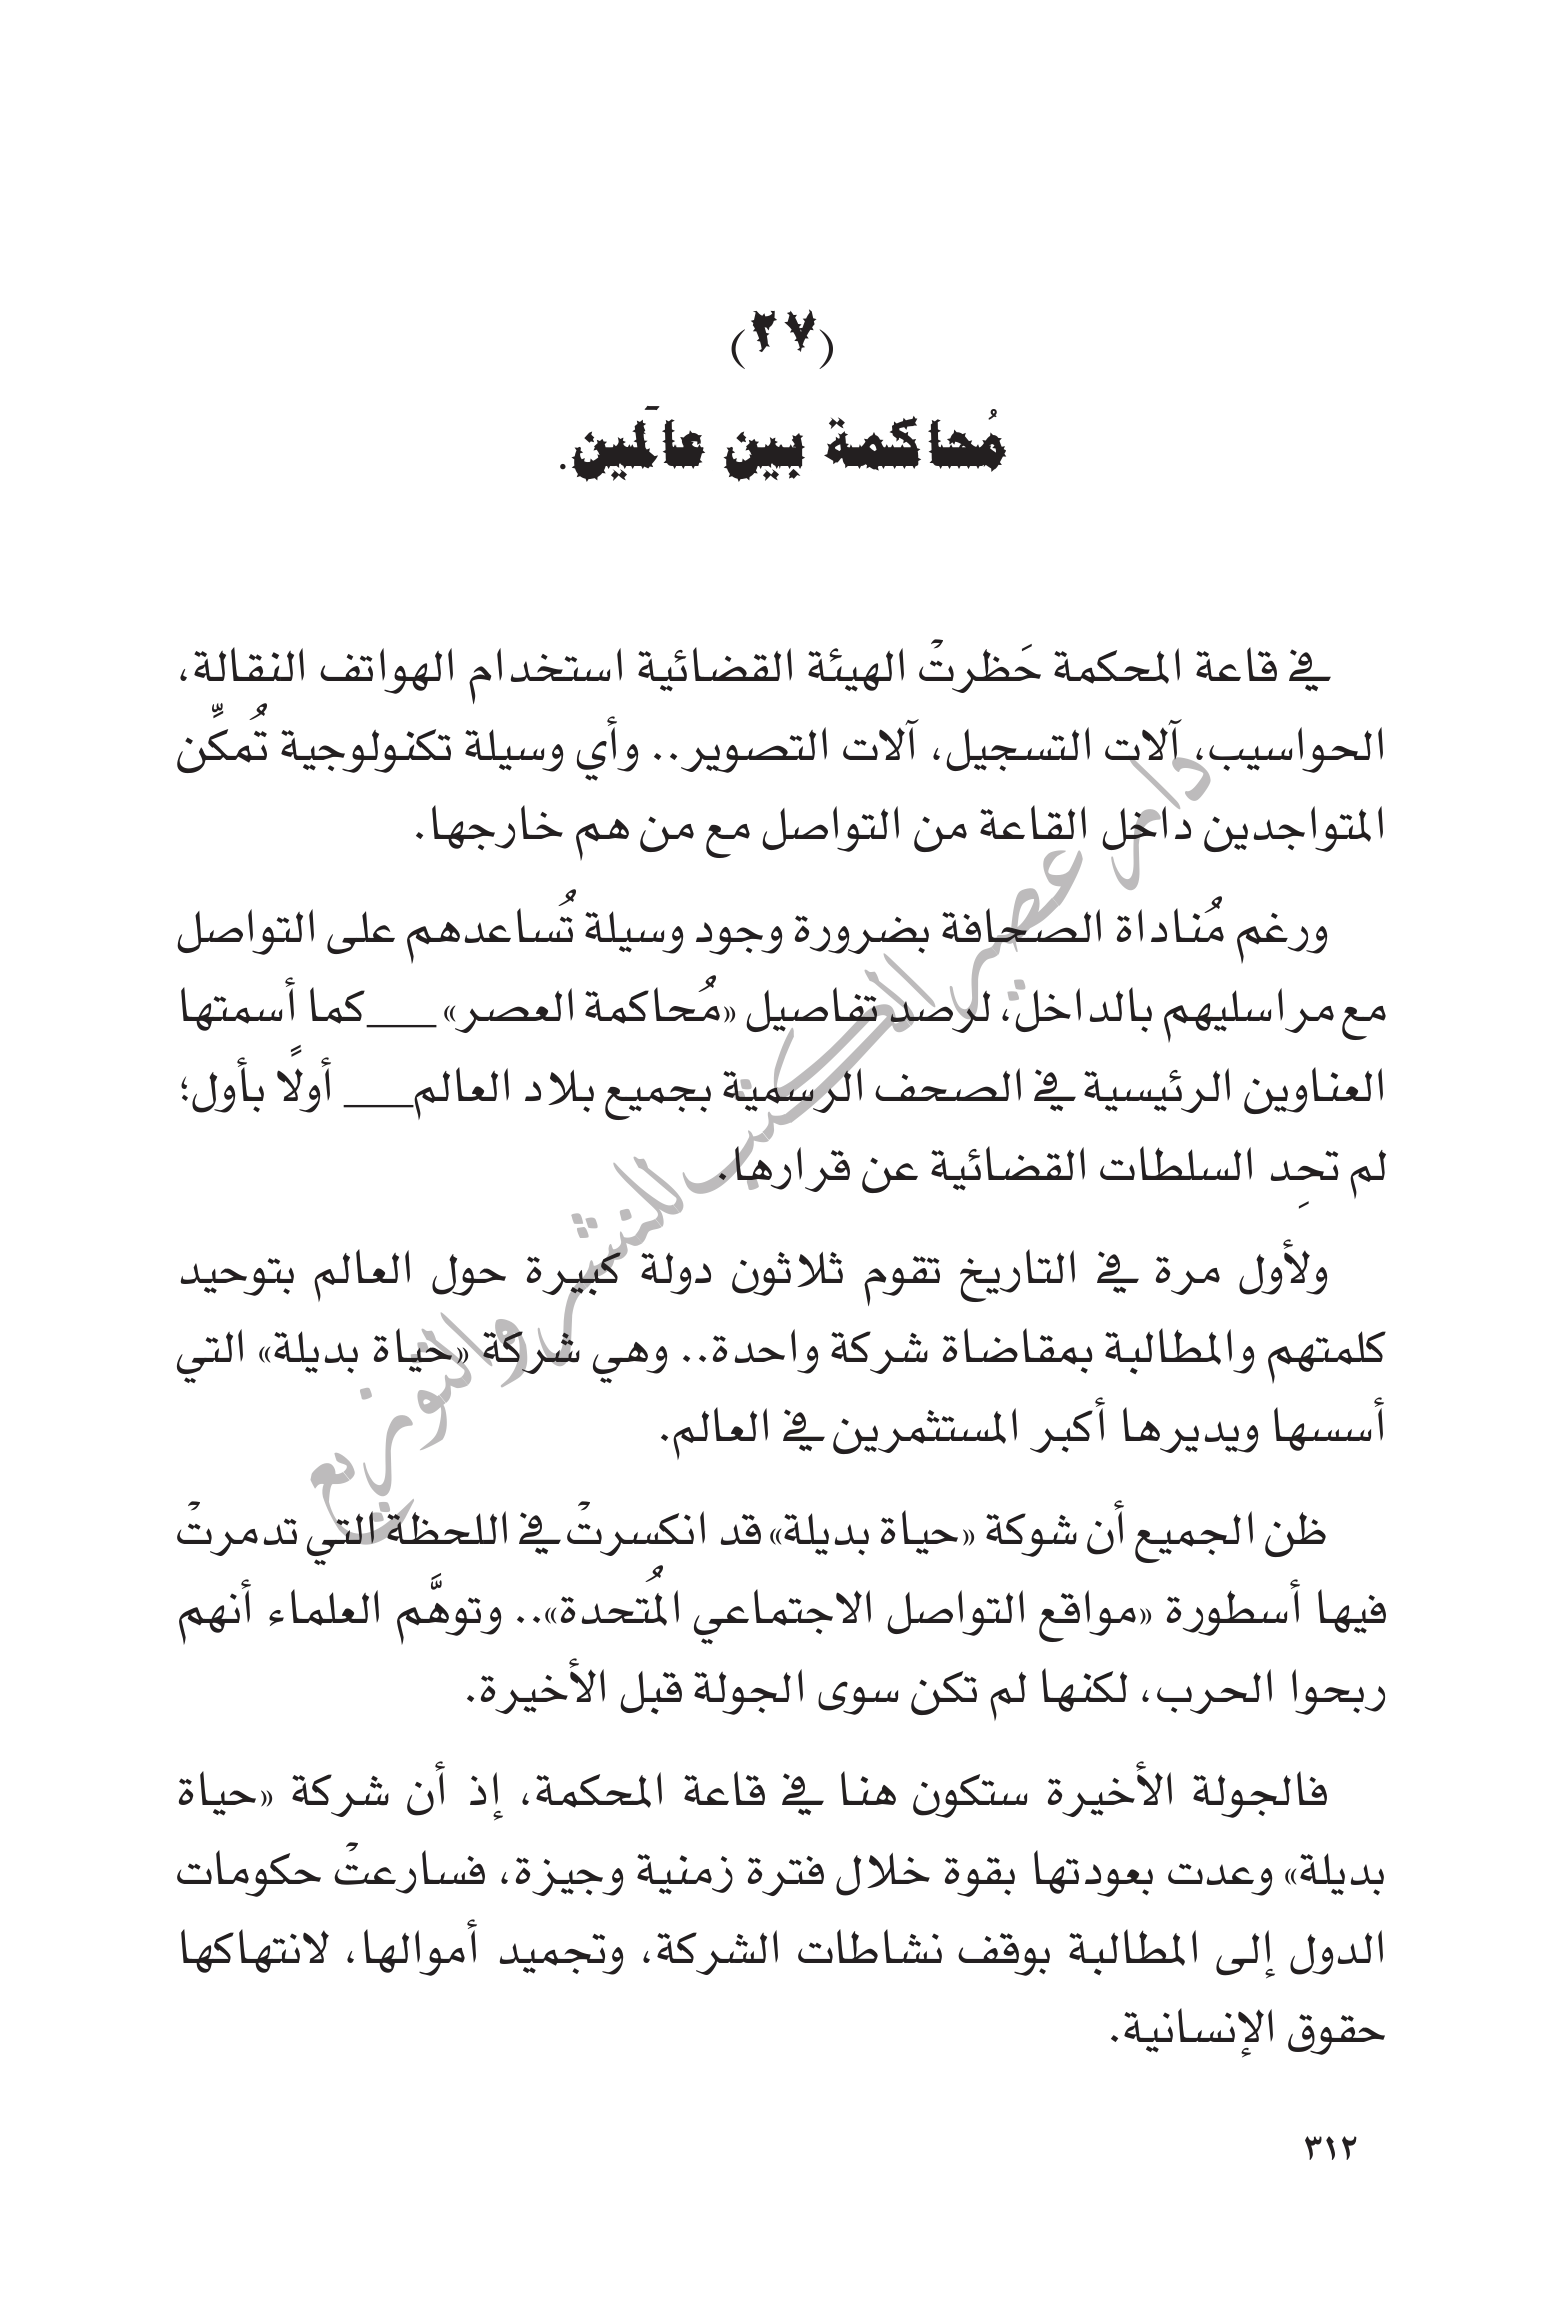 (٢٧)
مُحاكمة بين عالَمين.
في قاعة المحكمة حَظرتْ الهيئة القضائية استخدام الهواتف النقالة،
الحواسيب، آلات التسجيل، آلات التصوير.. وأي وسيلة تكنولوجية تُمكِّن
المتواجدين داخل القاعة من التواصل مع من هم خارجها.
ورغم مُناداة الصحافة بضرورة وجود وسيلة تُساعدهم على التواصل
مع مراسليهم بالداخل، لرصد تفاصيل «مُحاكمة العصر» ___كما أسمتها
العناوين الرئيسية في الصحف الرسمية بجميع بلاد العالم___ أولًا بأول؛
لم تحِد السلطات القضائية عن قرارها.
ولأول مرة في التاريخ تقوم ثلاثون دولة كبيرة حول العالم بتوحيد
كلمتهم والمطالبة بمقاضاة شركة واحدة.. وهي شركة «حياة بديلة» التي
أسسها ويديرها أكبر المستثمرين في العالم.
ظن الجميع أن شوكة «حياة بديلة» قد انكسرتْ في اللحظة التي تدمرتْ
فيها أسطورة «مواقع التواصل الاجتماعي المُتحدة».. وتوهَّم العلماء أنهم
ربحوا الحرب، لكنها لم تكن سوى الجولة قبل الأخيرة.
فالجولة الأخيرة ستكون هنا في قاعة المحكمة، إذ أن شركة «حياة
بديلة» وعدت بعودتها بقوة خلال فترة زمنية وجيزة، فسارعتْ حكومات
الدول إلى المطالبة بوقف نشاطات الشركة، وتجميد أموالها، لانتهاكها
حقوق الإنسانية.
٣١٢
دار عصير الكتب للنشر والتوزيع